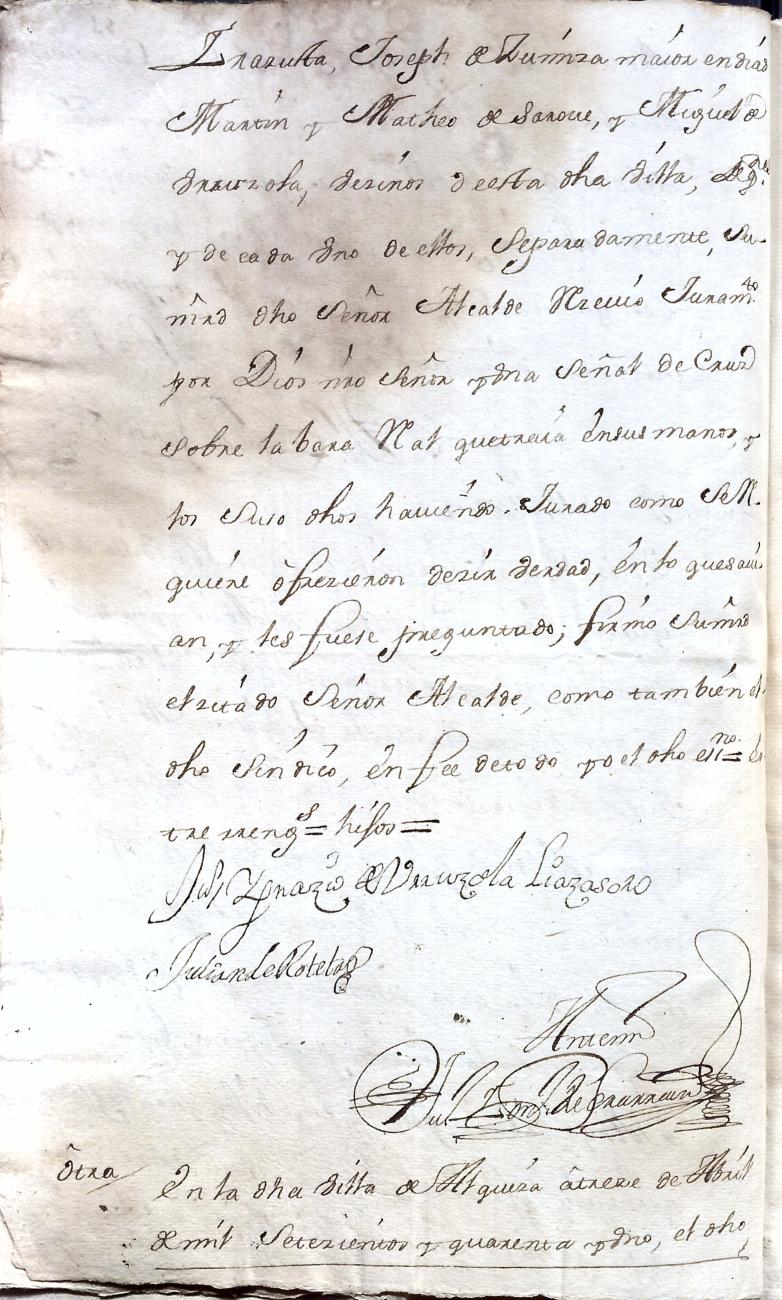 Joseph de Zumiza maior en dias
Martin y Matheo de Sarove, y Miguel de
Vrruzola, vezinos de esta dha villa, de
y de cada Vno de ellos, Separadamente, Su
mrd dho Señor Alcalde Rzeuio Juramto
por Dios nro Señor y vna Señal de Cruz
sobre la bara Rl que traia en sus manos, y
los Suso dhos hauiendo Jurado como Se R
quiere ofrezieron dezir verdad, en lo que saui
an, y les fuese preguntado; firmo Sumrd
el zitado Señor Alcalde, como tambien el
dho Sindico, en fee de todo yo el dho essno = en
tre rrengs = hijos =
Ignazio de Vrruzola Lizasoro
Julian de Roteta
Antemi

Otra
En la dha Villa de Alquiza a treze de Abril
de mil Setezientos y quarenta y vno, el dho